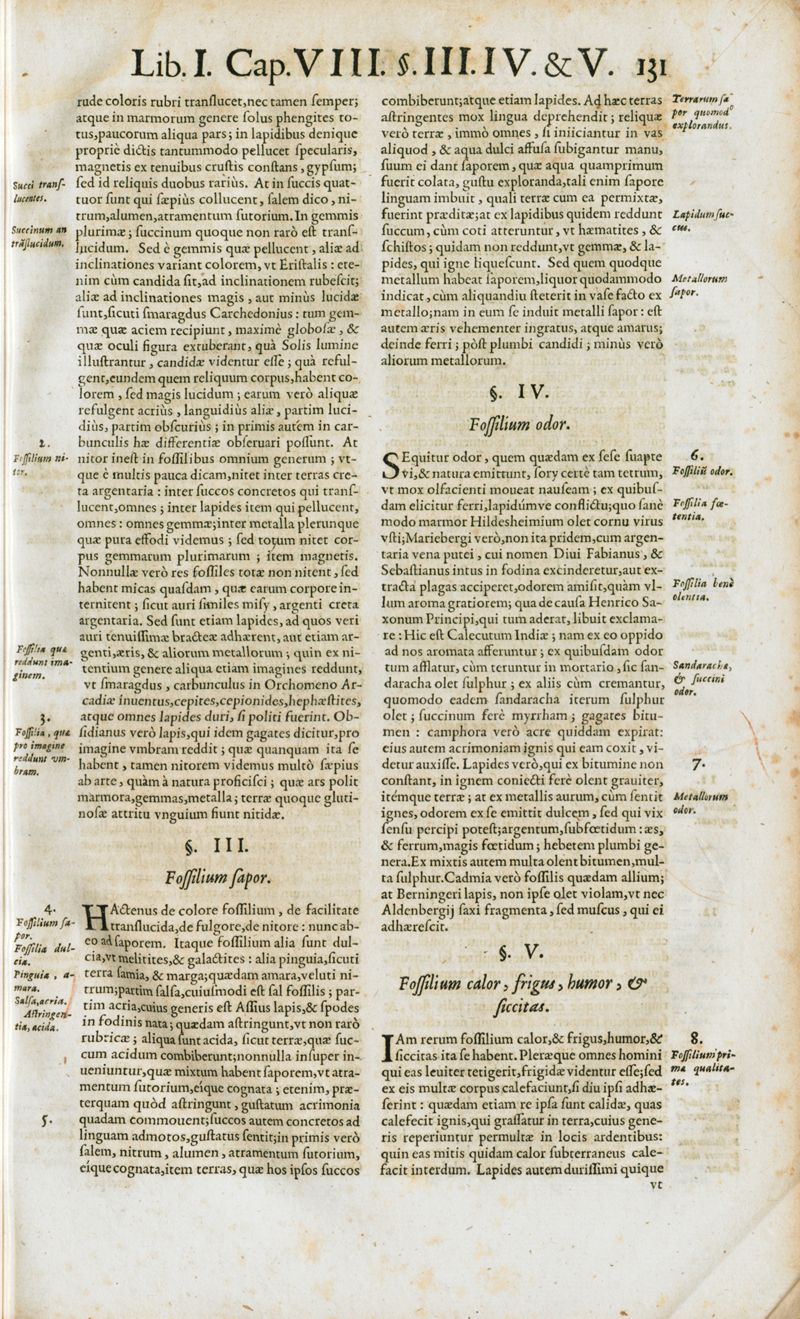 Lib. I. Cap. VIII. §. III. IV. & V. 131
rude coloris rubri tranſlucet,nec tamen ſemper;
atque in marmorum genere ſolus phengites to-
tus,paucorum aliqua pars; in lapidibus denique
propriè dictis tantummodo pellucet ſpecularis,
magnetis ex tenuibus cruſtis conſtans, gypſum;
Succi tranſ-
lucentes.
ſed id reliquis duobus rariùs. At in ſuccis quat-
tuor ſunt qui ſæpiùs collucent, ſalem dico, ni-
trum,alumen,atramentum ſutorium. In gemmis
Succinum an
trãſlucidum.
plurimæ; ſuccinum quoque non rarò eſt tranſ-
lucidum. Sed è gemmis quæ pellucent, aliæ ad
inclinationes variant colorem, vt Eriſtalis: ete-
nim cùm candida ſit,ad inclinationem rubeſcit;
aliæ ad inclinationes magis, aut minùs lucidæ
ſunt,ſicuti ſmaragdus Carchedonius: tum gem-
mæ quæ aciem recipiunt, maximè globoſæ, &
quæ oculi figura extuberant, quà Solis lumine
illuſtrantur, candidæ videntur eſſe; quà reful-
gent,eundem quem reliquum corpus,habent co-
lorem, ſed magis lucidum; earum verò aliquæ
refulgent acriùs, languidiùs aliæ, partim luci-
diùs, partim obſcuriùs; in primis autem in car-
2.
bunculis hæ differentiæ obſeruari poſſunt. At
Foſſilium ni-
tor.
nitor ineſt in foſſilibus omnium generum; vt-
que è multis pauca dicam,nitet inter terras cre-
ta argentaria: inter ſuccos concretos qui tranſ-
lucent,omnes; inter lapides item qui pellucent,
omnes: omnes gemmæ;inter metalla plerunque
quæ pura effodi videmus; ſed totum nitet cor-
pus gemmarum plurimarum; item magnetis.
Nonnullæ verò res foſſiles totæ non nitent, ſed
habent micas quaſdam, quæ earum corpore in-
ternitent; ſicut auri ſimiles miſy, argenti creta
argentaria. Sed ſunt etiam lapides, ad quos veri
auri tenuiſſimæ bracteæ adhærent, aut etiam ar-
Foſſilia quæ
reddunt ima-
ginem.
genti,æris, & aliorum metallorum; quin ex ni-
tentium genere aliqua etiam imagines reddunt,
vt ſmaragdus, carbunculus in Orchomeno Ar-
cadiæ inuentus,cepites,cepionides,hephæſtites,
3.
atque omnes lapides duri, ſi politi fuerint. Ob-
Foſſilia, quæ
pro imagine
reddunt vm-
bram.
ſidianus verò lapis,qui idem gagates dicitur,pro
imagine vmbram reddit; quæ quanquam ita ſe
habent, tamen nitorem videmus multò ſæpius
ab arte, quàm à natura proficiſci; quæ ars polit
marmora,gemmas,metalla; terræ quoque gluti-
noſæ attritu vnguium fiunt nitidæ.
§. III.
Foſſilium ſapor.
4.
HActenus de colore foſſilium, de facilitate
Foſſilium ſa-
por.
tranſlucida,de fulgore,de nitore: nunc ab-
eo ad ſaporem. Itaque foſſilium alia ſunt dul-
Foſſilia dul-
cia.
cia,vt melitites,& galactites: alia pinguia,ſicuti
Pinguia, a-
mara.
terra ſamia, & marga;quædam amara,veluti ni-
trum;partim ſalſa,cuiuſmodi eſt ſal foſſilis; par-
Salſa,acria.
tim acria,cuius generis eſt Aſſius lapis,& ſpodes
Aſtringen-
tia, acida.
in fodinis nata; quædam aſtringunt,vt non rarò
rubricæ; aliqua ſunt acida, ſicut terræ,quæ ſuc-
cum acidum combiberunt;nonnulla inſuper in-
ueniuntur,quæ mixtum habent ſaporem,vt atra-
mentum ſutorium,eíque cognata; etenim, præ-
terquam quòd aſtringunt, guſtatum acrimonia
5.
quadam commouent;ſuccos autem concretos ad
linguam admotos,guſtatus ſentit;in primis verò
ſalem, nitrum, alumen, atramentum ſutorium,
eíque cognata,item terras, quæ hos ipſos ſuccos
combiberunt;atque etiam lapides. Ad hæc terras
Terrarum ſa
por quomodo
explorandus.
aſtringentes mox lingua deprehendit; reliquæ
verò terræ, immò omnes, ſi iniiciantur in vas
aliquod, & aqua dulci affuſa ſubigantur manu,
ſuum ei dant ſaporem, quæ aqua quamprimum
fuerit colata, guſtu exploranda,tali enim ſapore
linguam imbuit, quali terræ cum ea permixtæ,
Lapidum ſuc-
cus.
fuerint præditæ;at ex lapidibus quidem reddunt
ſuccum, cùm coti atteruntur, vt hæmatites, &
ſchiſtos; quidam non reddunt,vt gemmæ, & la-
pides, qui igne liqueſcunt. Sed quem quodque
Metallorum
ſapor.
metallum habeat ſaporem,liquor quodammodo
indicat, cùm aliquandiu ſteterit in vaſe facto ex
metallo;nam in eum ſe induit metalli ſapor: eſt
autem æris vehementer ingratus, atque amarus;
deinde ferri; pòſt plumbi candidi; minùs verò
aliorum metallorum.
§. IV.
Foſſilium odor.
6.
SEquitur odor, quem quædam ex ſeſe ſuapte
Foſſiliũ odor.
vi,& natura emittunt, ſory certè tam tetrum,
vt mox olfacienti moueat nauſeam; ex quibuſ-
Foſſilia fœ-
tentia.
dam elicitur ferri,lapidúmve conflictu;quo ſanè
modo marmor Hildesheimium olet cornu virus
vſti;Mariebergi verò,non ita pridem,cum argen-
taria vena putei, cui nomen Diui Fabianus, &
Sebaſtianus intus in fodina excinderetur,aut ex-
Foſſilia benè
olentia.
tracta plagas acciperet,odorem amiſit,quàm vl-
lum aroma gratiorem; qua de cauſa Henrico Sa-
xonum Principi,qui tum aderat, libuit exclama-
re: Hic eſt Calecutum Indiæ; nam ex eo oppido
ad nos aromata afferuntur; ex quibuſdam odor
Sandaracha,
& ſuccini
odor.
tum afflatur, cùm teruntur in mortario, ſic ſan-
daracha olet ſulphur; ex aliis cùm cremantur,
quomodo eadem ſandaracha iterum ſulphur
olet; ſuccinum ferè myrrham; gagates bitu-
men: camphora verò acre quiddam expirat:
eius autem acrimoniam ignis qui eam coxit, vi-
7.
detur auxiſſe. Lapides verò,qui ex bitumine non
conſtant, in ignem coniecti ferè olent grauiter,
Metallorum
odor.
itémque terræ; at ex metallis aurum, cùm ſentit
ignes, odorem ex ſe emittit dulcem, ſed qui vix
ſenſu percipi poteſt;argentum,ſubfœtidum: æs,
& ferrum,magis fœtidum; hebetem plumbi ge-
nera.Ex mixtis autem multa olent bitumen,mul-
ta ſulphur.Cadmia verò foſſilis quædam allium;
at Berningeri lapis, non ipſe olet violam,vt nec
Aldenbergij ſaxi fragmenta, ſed muſcus, qui ei
adhæreſcit.
§. V.
Foſſilium calor, frigus, humor, &
ſiccitas.
8.
IAm rerum foſſilium calor,& frigus,humor,&
Foſſilium pri-
ma qualita-
tes.
ſiccitas ita ſe habent. Pleræque omnes homini
qui eas leuiter tetigerit,frigidæ videntur eſſe;ſed
ex eis multæ corpus calefaciunt,ſi diu ipſi adhæ-
ſerint: quædam etiam re ipſa ſunt calidæ, quas
calefecit ignis,qui graſſatur in terra,cuius gene-
ris reperiuntur permultæ in locis ardentibus:
quin eas mitis quidam calor ſubterraneus cale-
facit interdum. Lapides autem duriſſimi quique
vt